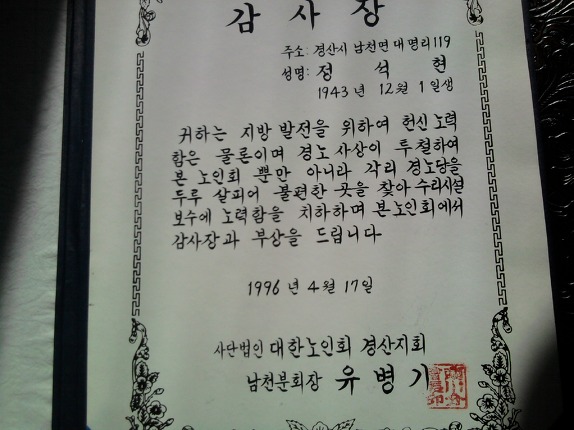 감사장
주소: 경산시 남천면 대명리 119
성명: 정석현
1943년 12월 1일생
귀하는 지방 발전을 위하여 헌신 노력
함은 물론이며 경노사상이 투철하여
본 노인회 뿐만 아니라 각리 경노당을
두루 살피어 불편한 곳을 찾아 수리시설
보수에 노력함을 치하하며 본노인회에서
감사장과 부상을 드립니다
1996년 4월 17일
사단법인 대한노인회 경산지회
남천분회장 유병기